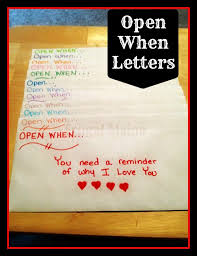 Open
When
Letters
OPEN WHEN...
OPEN WHEN...
OPEN WHEN...
OPEN WHEN...
Open...
Open When...
Open When...
Open When...
Open When...
OPEN WHEN...
You need a reminder
of why I Love You